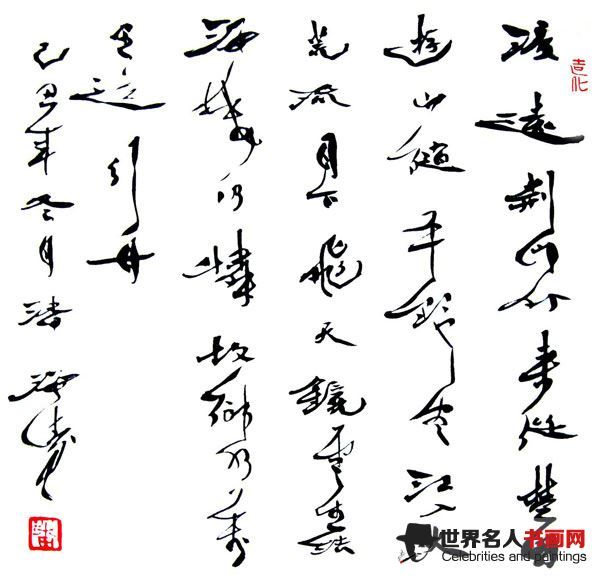 渡遠荆门外来從楚國
遊山随平野尽江入大
荒流月下飛天鏡雲生结
海楼仍憐故鄉水萬
里送行舟
己丑年冬月
造化
世界名人书画网
Celebrities and paintings